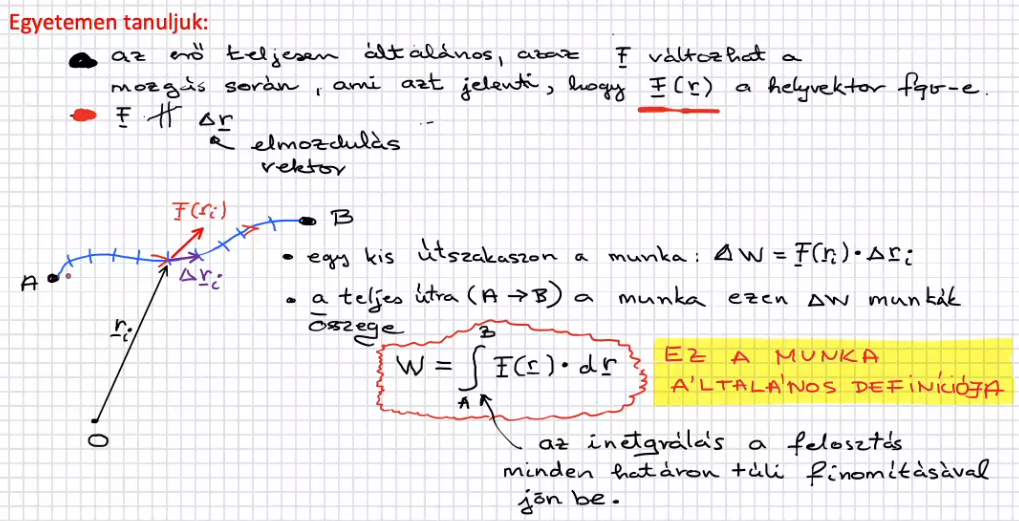 Egyetemen tanuljuk:
az erő teljesen általános, azaz F változhat a
mozgás során, ami azt jelenti, hogy F(r) a helyvektor fgv-e.
F ∦ Δr
elmozdulás
vektor
F(ri)
B
A
Δri
ri
O
• egy kis útszakaszon a munka: ΔW = F(ri)·Δri
• a teljes útra (A→B) a munka ezen ΔW munkák
összege
W = ∫ₐᴮ F(r)·dr
EZ A MUNKA
ÁLTALÁNOS DEFINÍCIÓJA
az inetgrálás a felosztás
minden határon túli finomításával
jön be.